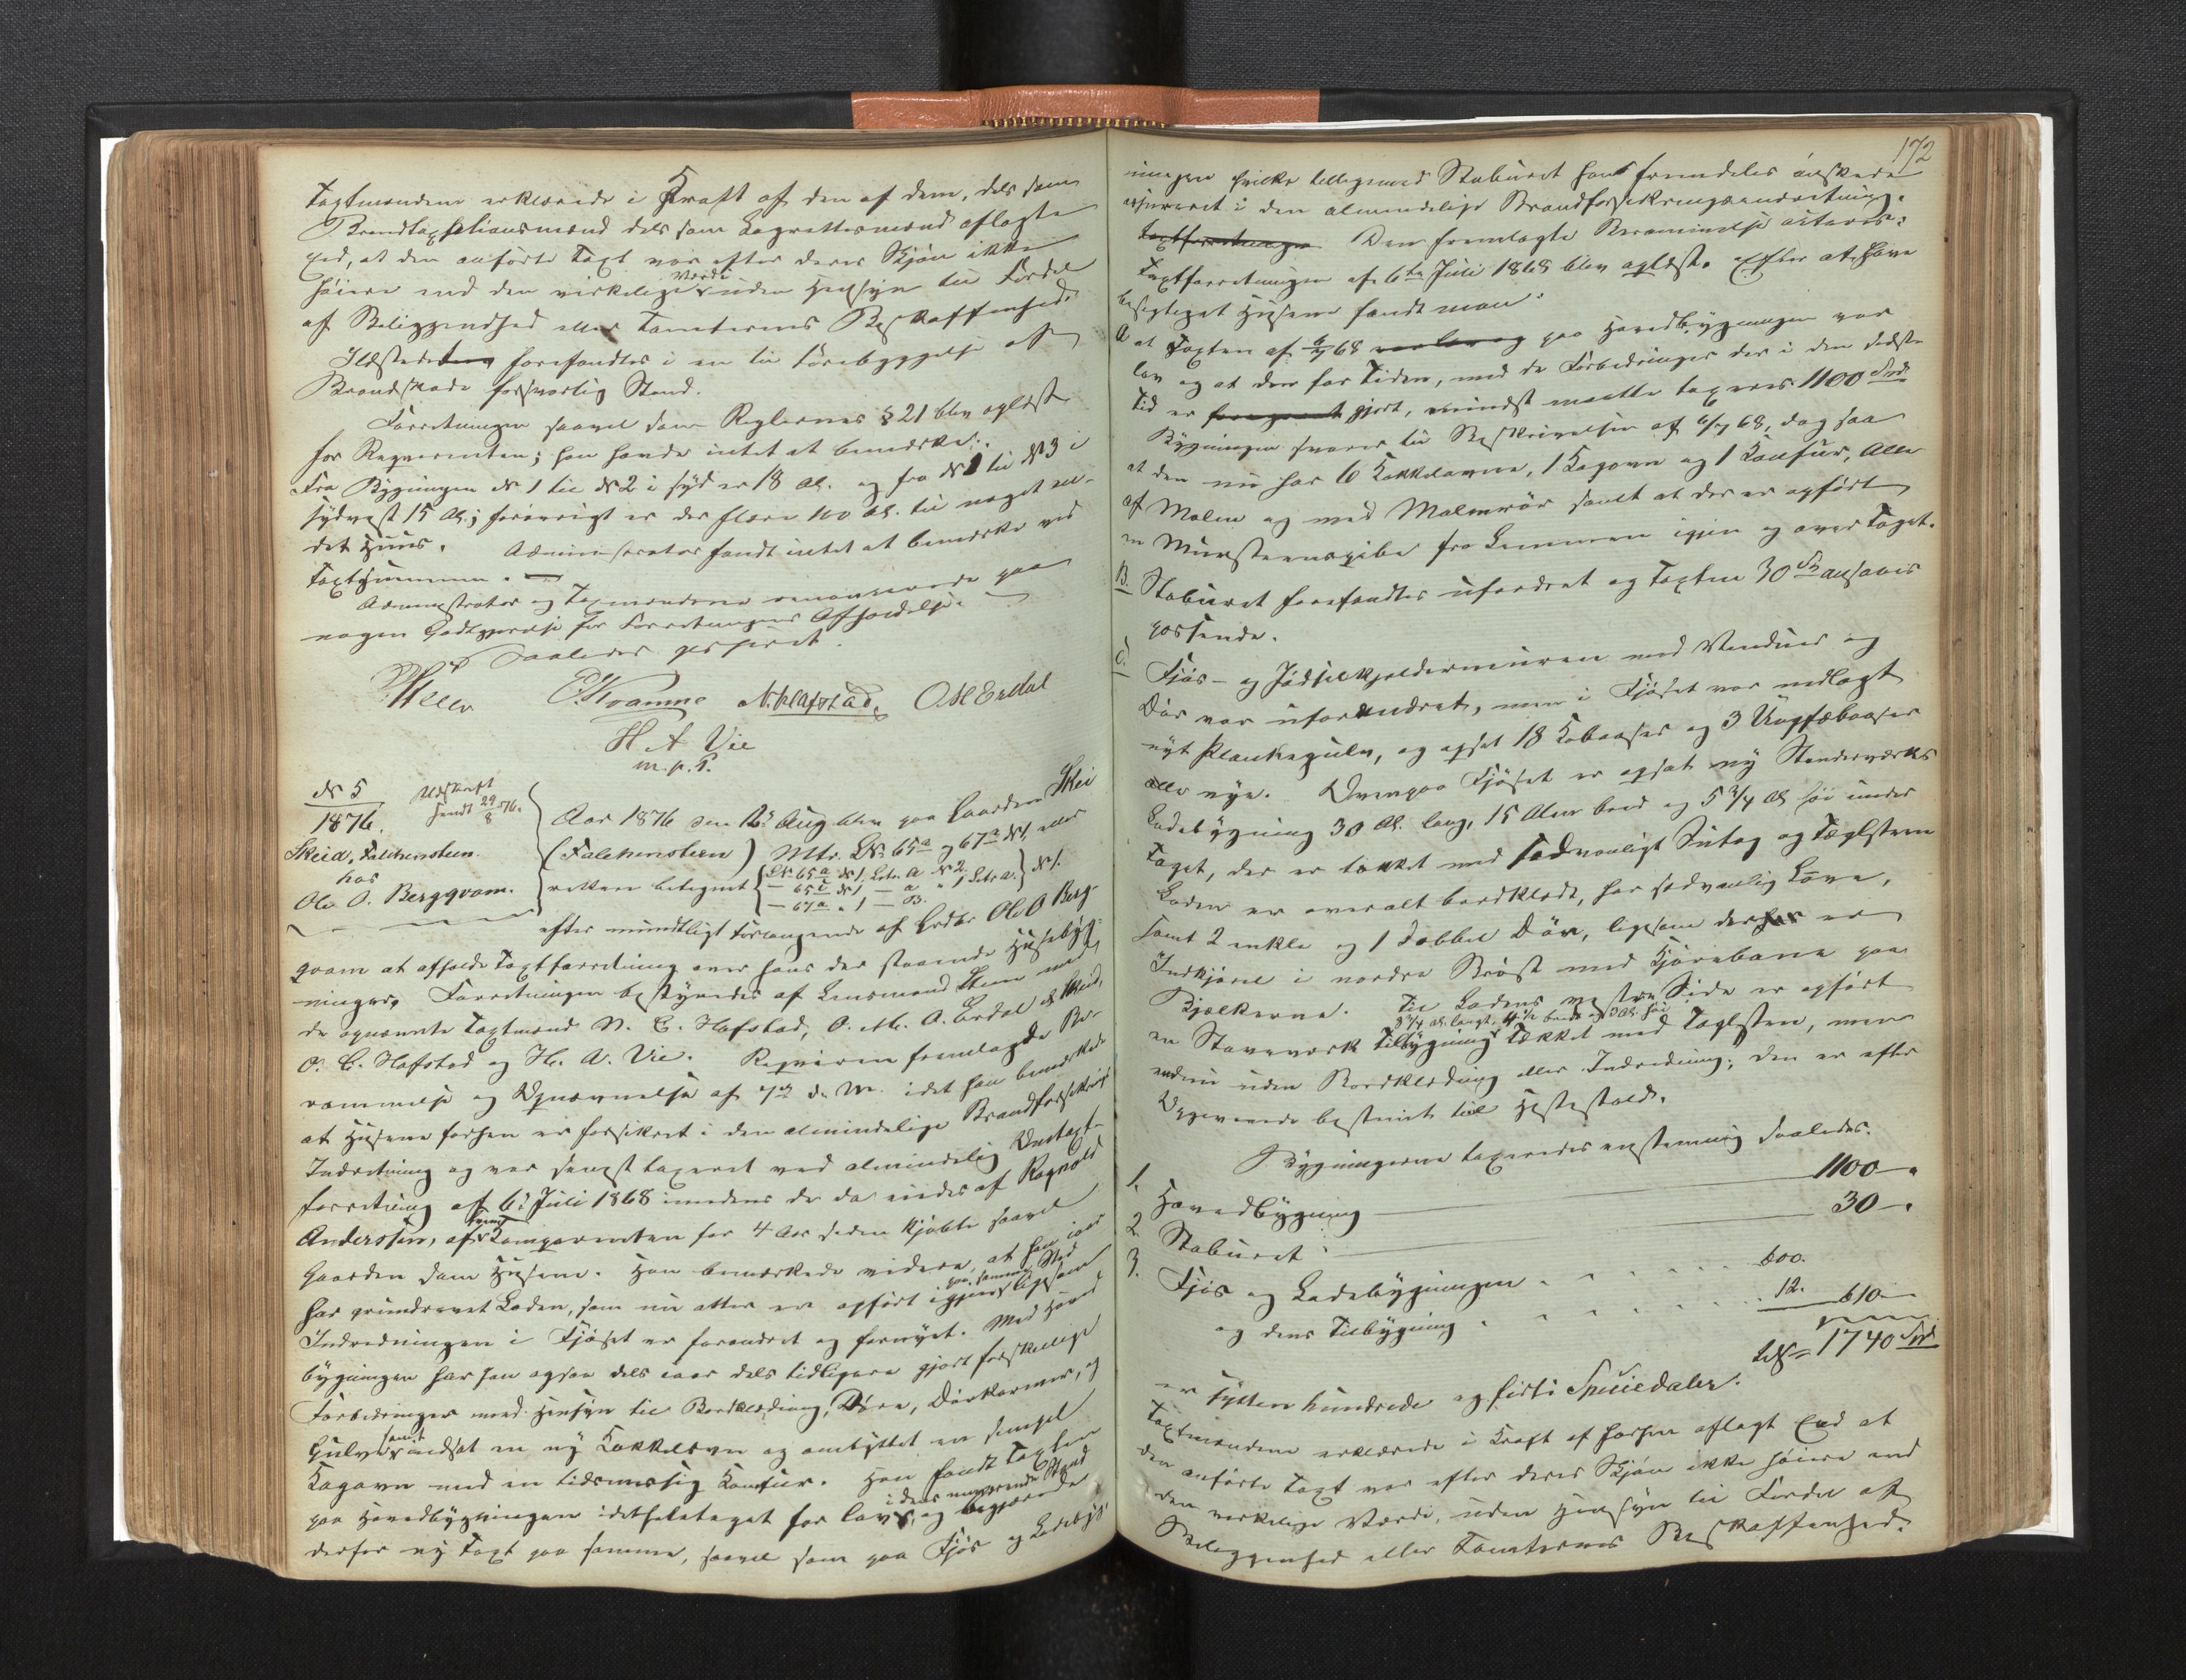 Taxtmændene erklærede i Kraft af den af dem, dels som
Brandtaxationsmænd dels som Lagrettesmænd aflagte
Eed, at den anførte Taxt var efter deres Skjøn ikke
høiere end den virkelige Værdi uden Hensyn til Fordel
af Beliggenhed eller Tomternes Beskaffenhed.
Ildstederne forefandtes i en til Forebyggelse af
Brandskade forsvarlig Stand.
Forretningen saavel som Reglernes § 21 blev oplæst
for Reqvirenten; han havde intet at bemærke.
Fra Bygningen № 1 til № 2 i syd er 18 Al. og fra № 1 til № 3 i
sydvest 15 Al.; forøvrigt er der flere 100 Al. til noget an-
det Huus. Administrator fandt intet at bemærke ved
Taxtsummen.
Administrator og Taxmændene renoncerede paa
nogen Godtgjørelse for Forretningens Afholdelse.
Saaledes passeret.
Kvamme N. C. Hafstad, O M Erdal
H A Vie
m. p. P.
№ 5
1876.
Udskrift
sendt 29/8 76.
Skeid, Falchensteen
hos
Ole O. Bergqvam.
Aar 1876 den 12' Aug blev paa Gaarden Skei
(Falchensteen) Mtr. L№ 65a og 67a № 1, eller
rettere betegnet L№ 65a № 1, Litr. a № 2.
— 65c № 1 — a " 1 Litr a. № 1.
— 67a " 1 — B.
efter mundtligt Forlangende af Grdbr Ole O Berg-
qvam at afholde Taxtforretning over hans der staaende Husebyg-
ninger. Forretningen bestyredes af Lensmand med
de opnævnte Taxtmænd N. C. Hafstad, O. M. A. Erdal
O. C. Hafstad og H. A. Vie. Reqvirenten fremlagde Be-
rammelse og Opnævnelse af 7de d. M. idet han bemærkede
at Husene forhen er forsikret i den almindelige Brandforsikrings
Indretning og var senest taxeret ved almindelig Omtaxt-
forretning af 6' Juli 1868 medens de da eiedes af Ragnald
Anderssen, af hvem Komparenten for 4 Aar siden kjøbte saavel
Gaarden som Husene. Han bemærkede videre, at han iaar
har grundrevet Laden, som nu atter er opført igjen paa samme Sted ligesom
Indredningen i Fjøset er forandret og fornyet. Med Hoved
bygningen har han ogsaa dels iaar dels tidligere gjort forskjellige
Forbedringer med Hensyn til Bordklædning, Døre, Dørkarmer, og
Gulve samt indsat en ny Kakkelovn og ombyttet en simpel
Kogovn med en tidsmæssig Komfur. Han fandt Taxten
paa Hovedbygningen idethele taget for lav i dens nuværende Stand og begjærede
derfor ny Taxt paa samme, saavel som paa Fjøs og Ladebyg-
172
ningen hvilke tilligemed Staburet han fremdeles ønskede
assureret i den almindelige Brandforsikringsindretning.
Taxtforretningen Den fremlagte Berammelse
Taxtforretningen af 6te Juli 1868 blev oplæst. Efter at have
besigtiget Husene fandt man:
A at Taxten af 6/7 68 paa Hovedbygningen var
lav og at den for Tiden, med de Forbedringer der i den sidste
Tid er foregaaet gjort, mindst maatte taxeres 1100 Spd.
Bygningen svarer til Beskrivelsen af 6/7 68, dog saa
at den nu har 6 Kakkelovne, 1 Kogovn og 1 Komfur, alle
af Malm og med Malmrør samt at der er opført
en Mursteenspibe fra Lemmen igjen og over Taget.
B. Staburet forefandtes uforandret og Taxten 30 Spd ansaaes
passende.
C. Fjøs- og Gjødselkjeldermuren med Vinduer og
Dør var uforandret, men i Fjøset var nedlagt
nyt Plankegulv, og opsat 18 Kobaaser og 3 Ungfæbaaser
alle nye. Ovenpaa Fjøset er opsat ny Stenderværks
Ladebygning 30 Al. lang, 15 Alen bred og 5 3/4 Al. høi under
Taget, der er tækket med sædvanligt Sutag og Taglsteen
Laden er overalt bordklædt, har sædvanlig Løve,
samt 2 enkle og 1 dobbel Dør, ligesom der er
Indkjørsel i nordre Brøst med Kjørebane paa
Bjælkerne. Til Ladens vestre Side er opført
en Stavværk Tilbygning 9 3/4 Al. langt, 4 1/2 bred og 3 Al. høi tækket med Taglsteen, men
endnu uden Bordklædning eller Indredning; den er efter
Opgivende bestemt til Hestestald.
Bygningerne taxeredes enstemmig saaledes.
1. Hovedbygning 1100 "
2 Staburet 30 "
3. Fjøs og Ladebygningen 600.
og dens Tilbygning 12. 610
tils = 1740 Spd
er sytten hundrede og firti Speciedaler.
Taxtmændene erklærede i Kraft af forhen aflagt Eed at
den anførte Taxt var efter deres Skjøn ikke høiere end
den virkelige Værdi, uden Hensyn til Fordel af
Beliggenhed eller Tomternes Beskaffenhed.